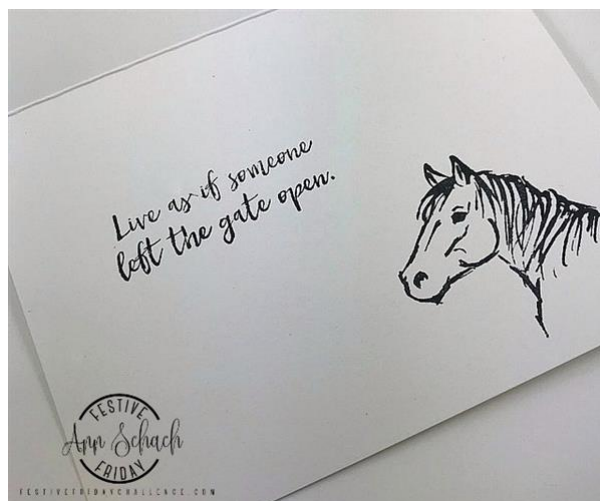 Live as if someone
left the gate open.
FESTIVE
Ann Schach
FRIDAY
FESTIVEFRIDAYCHALLENGE.COM